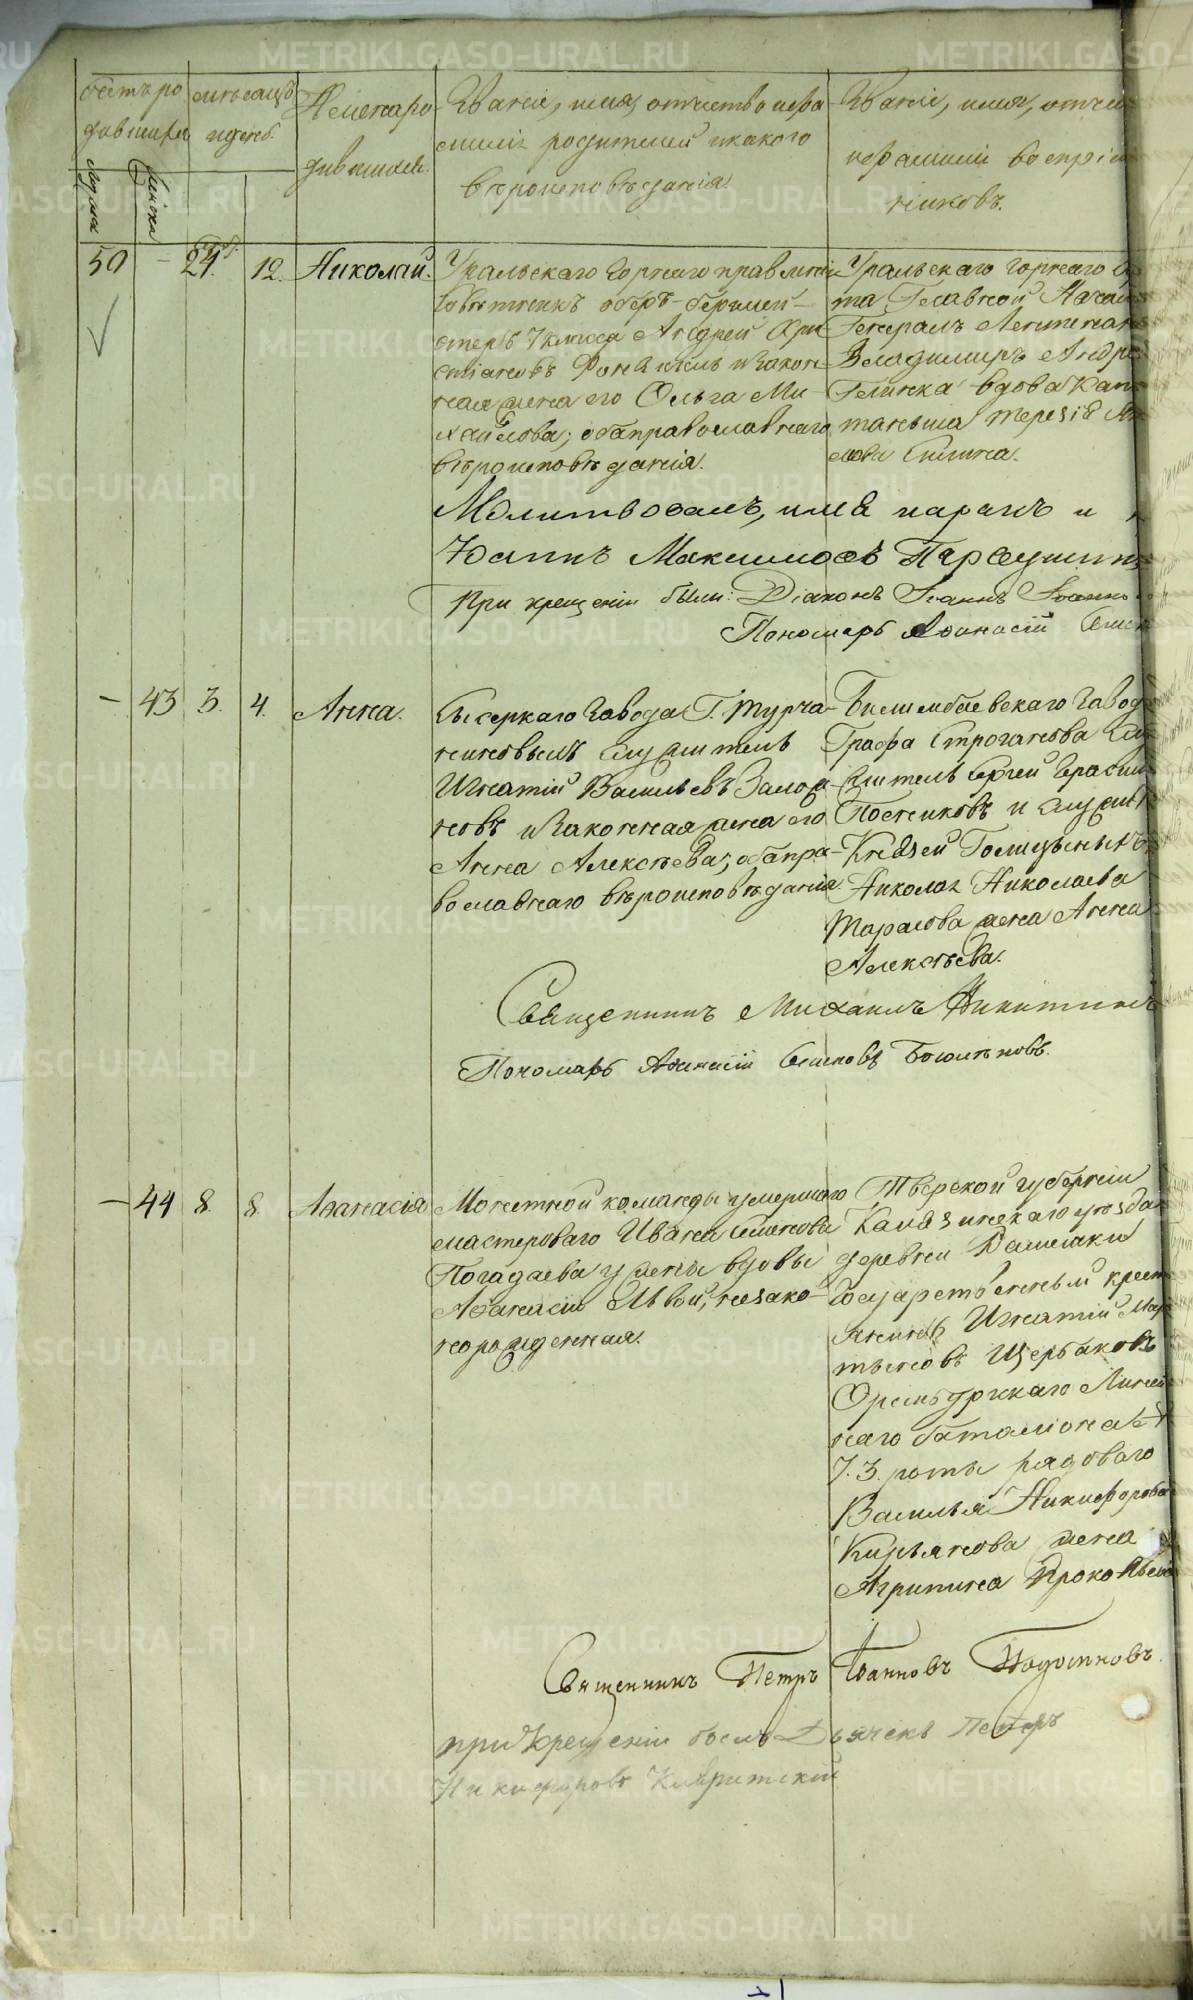 METRIKI.GASO-URAL.RU
Счетъ ро
дившихся
мѣсяцъ
и день.
Имена ро
дившихся.
Званіе, имя, отчество и фа
милія родителей и какого
вѣроисповѣданія.
Званіе, имя, отче
и фамилія воспріем
никовъ.
50 – 24. 12. Николай.
Уральскаго Горнаго правленія
Совѣтникъ оберъ-бергмей-
стеръ 7 класса Андрей Хри
стіановъ Фонъ и закон-
ная жена его Ольга Ми-
хайлова; оба православнаго
вѣроисповѣданія.
Уральскаго Горнаго
та Главной Началь
Генералъ Лейтенан
Владимиръ Андре
Глинка вдова Кап
танша Терезія
лова
Молитвовалъ, имя нарекъ и
Іоаннъ Максимовъ
При крещеніи были: Діаконъ Іоаннъ
Пономарь Аѳанасій
– 43 3. 4. Анна.
Сысерскаго Завода Г. Турча-
ниновыхъ служитель
Игнатій Васильевъ
новъ и законная жена его
Анна Алексѣева; оба пра-
вославнаго вѣроисповѣданія.
Билимбаевскаго Завод
Графа Строганова слу
житель Сергей
Постниковъ и служит
Князей Голицыныхъ
Николая Николаева
Тарасова жена Анна
Алексѣева.
Священникъ Михаилъ Никитинъ
Пономарь Аѳанасій Симновъ
– 44 8. 8. Аѳанасія
Монетной команды умершаго
мастероваго Ивана Семенова
Погадаева у жены вдовы
Аѳанасіи Львой, незако-
норожденная.
Тверской губерніи
Калязинскаго уѣзда
деревни
Государственный крест
янинъ Игнатій Мар
тыновъ Щербаковъ
Оренбургскаго Линей
наго баталіона №
7. 3. роты рядоваго
Василья Никифорова
Кирьянова жена
Агрипина Прокопьева
Священникъ Петръ Іоанновъ
при Крещеніи былъ Дьячекъ Петръ
Никифоровъ